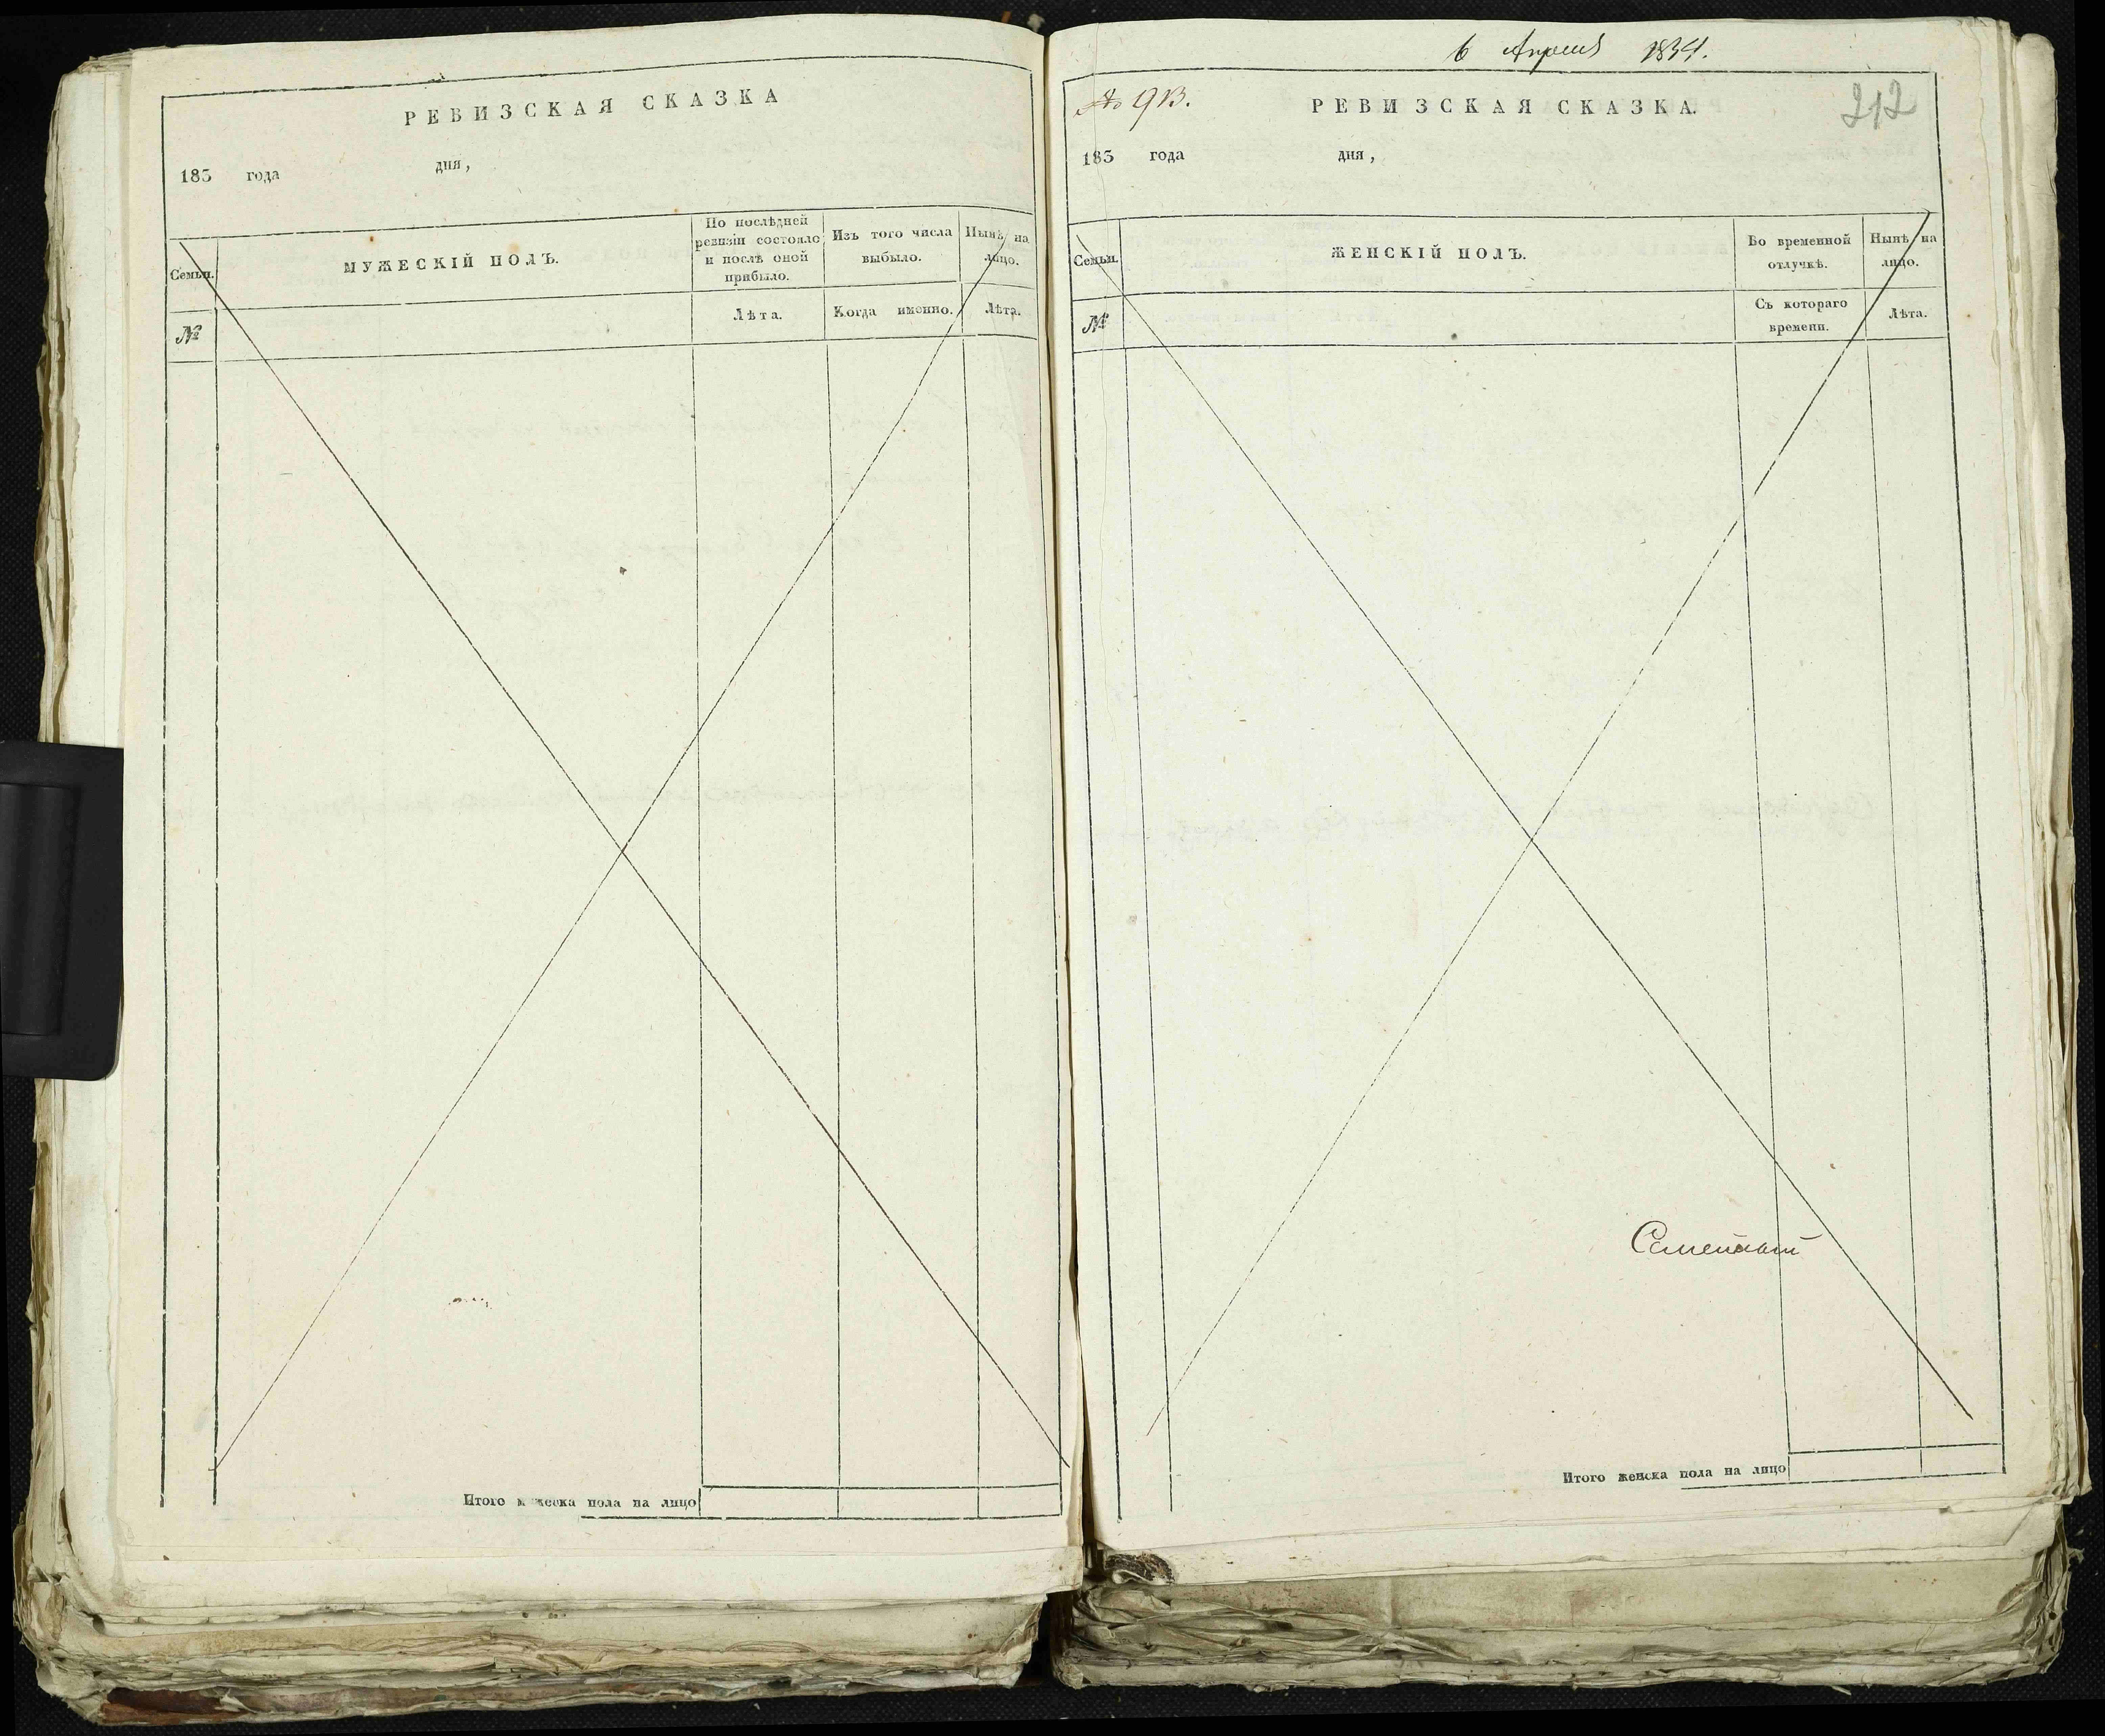 РЕВИЗСКАЯ СКАЗКА
183 года дня,
Семьи.
МУЖЕСКІЙ ПОЛЪ.
По послѣдней ревизіи состояло и послѣ оной прибыло.
Изъ того числа выбыло.
Нынѣ на лицо.
№
Лѣта.
Когда именно.
Лѣта.
Итого мужеска пола на лицо
6 Апреля 1834.
№ 913.
РЕВИЗСКАЯ СКАЗКА.
212
183 года дня,
Семьи.
ЖЕНСКІЙ ПОЛЪ.
Во временной отлучкѣ.
Нынѣ на лицо.
№
Съ котораго времени.
Лѣта.
Итого женска пола на лицо